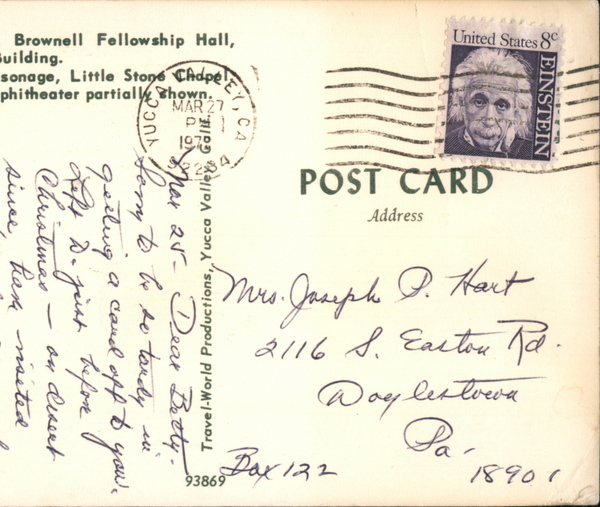 Brownell Fellowship Hall,
Building.
sonage, Little Stone Chapel,
phitheater partially shown.
YUCCA VALLEY, CA
MAR 27
PM
92284
United States 8c
EINSTEIN
POST CARD
Address
Mrs. Joseph P. Hart
2116 S. Easton Rd.
Doylestown
Pa.
18901
Box 122
93869
Travel-World Productions, Yucca Valley, Calif.
Mar 25 - Dear Betty -
Sorry to be so tardy in
getting a card off to you.
Left D. just before
Christmas - on desert
since, have visited